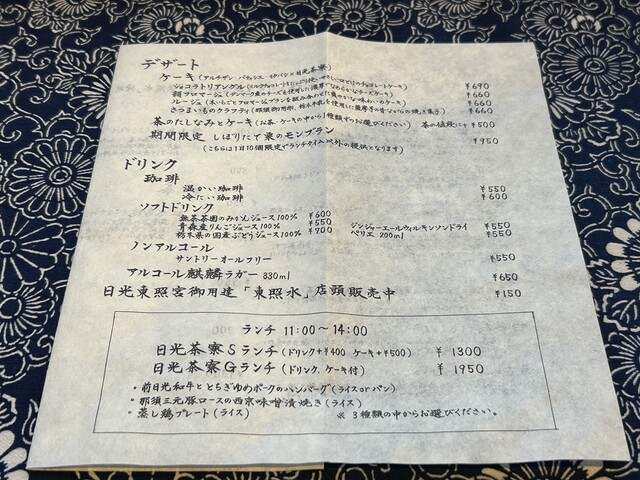 デザート
ケーキ(アルチザン・パティシエ・イタバシ×日光茶寮)
ショコラトリアングル ¥690
苺フロマージュ ¥660
ルージュ ¥660
さつまいものクラフティ ¥660
茶のたしなみとケーキ(お茶・ケーキの中から1種類ずつお選びください) 茶の値段に+¥500
期間限定 しぼりたて栗のモンブラン ¥950
(こちらは1日10個限定でランチタイム以外の提供となります)
ドリンク
珈琲
温かい珈琲 ¥550
冷たい珈琲 ¥600
ソフトドリンク
無茶茶園のみかんジュース100% ¥600
青森産りんごジュース100% ¥550 ジンジャーエールウィルキンソンドライ ¥550
栃木県の国産ぶどうジュース100% ¥700 ペリエ 200ml ¥550
ノンアルコール
サントリーオールフリー ¥550
アルコール麒麟ラガー 330ml ¥650
日光東照宮御用達「東照水」店頭販売中 ¥150
ランチ 11:00~14:00
日光茶寮Sランチ(ドリンク+¥400 ケーキ+¥500) ¥1300
日光茶寮Gランチ(ドリンク、ケーキ付) ¥1950
・前日光和牛ととちぎゆめポークのハンバーグ(ライスorパン)
・那須三元豚ロースの西京味噌漬焼き(ライス)
・蒸し鶏プレート(ライス) ※3種類の中からお選びください。